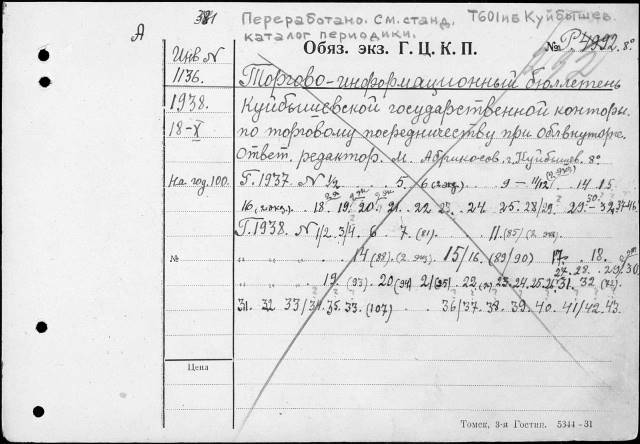 А 381 Переработано. См. станд. Т601иб Куйбышев.
каталог периодики.
Обяз. экз. Г. Ц. К. П. № Р. 4992. 8°
Инв N
1136. Торгово-информационный бюллетень
1938. Куйбышевской государственной конторы
18-X по торговому посредничеству при облвнуторге.
Ответ. редактор. М. Абрикосов. г. Куйбышев. 8°
На год. 100. Г. 1937 N 1/2 5. 6 (2 экз.) 9 – 11/12 14 15.
16 (2 экз.) 18. 19. 20. 21. 22 23. 24. 25. 28/29. 29.
Г. 1938. N 1/2. 3/4 6 7 (81) 11 (85) (2 экз)
№ " " " 14 (88). (2 экз). 15/16. (89/90) 17. 18.
27. 28. 29/30.
" " " 19 (93). 20 (94) 21 (95) 22. 23. 24. 25. 31. 32
31. 32. 33/34. 35. 33. (107) 36/37. 38. 39. 40. 41/42. 43.
Цена
Томск, 3-я Гостип. 5344-31